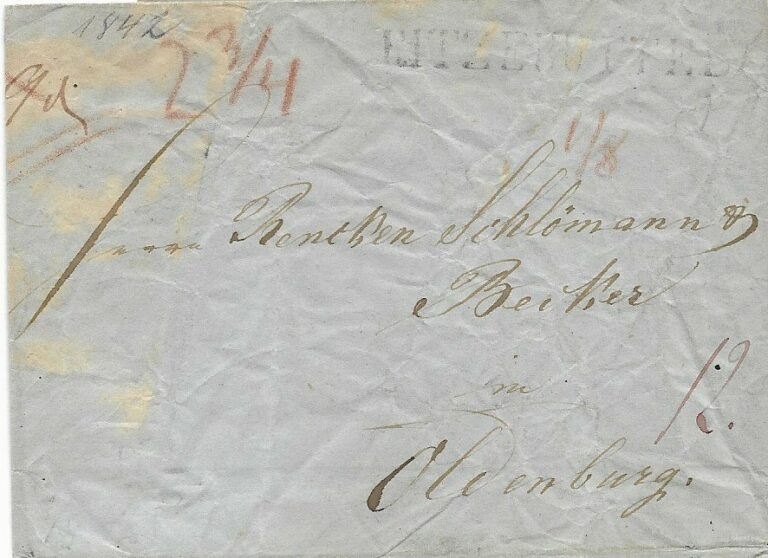 1842
2 3/4
1/8
Herrn Rencken Schlömann &
Becker
in
12.
Oldenburg.